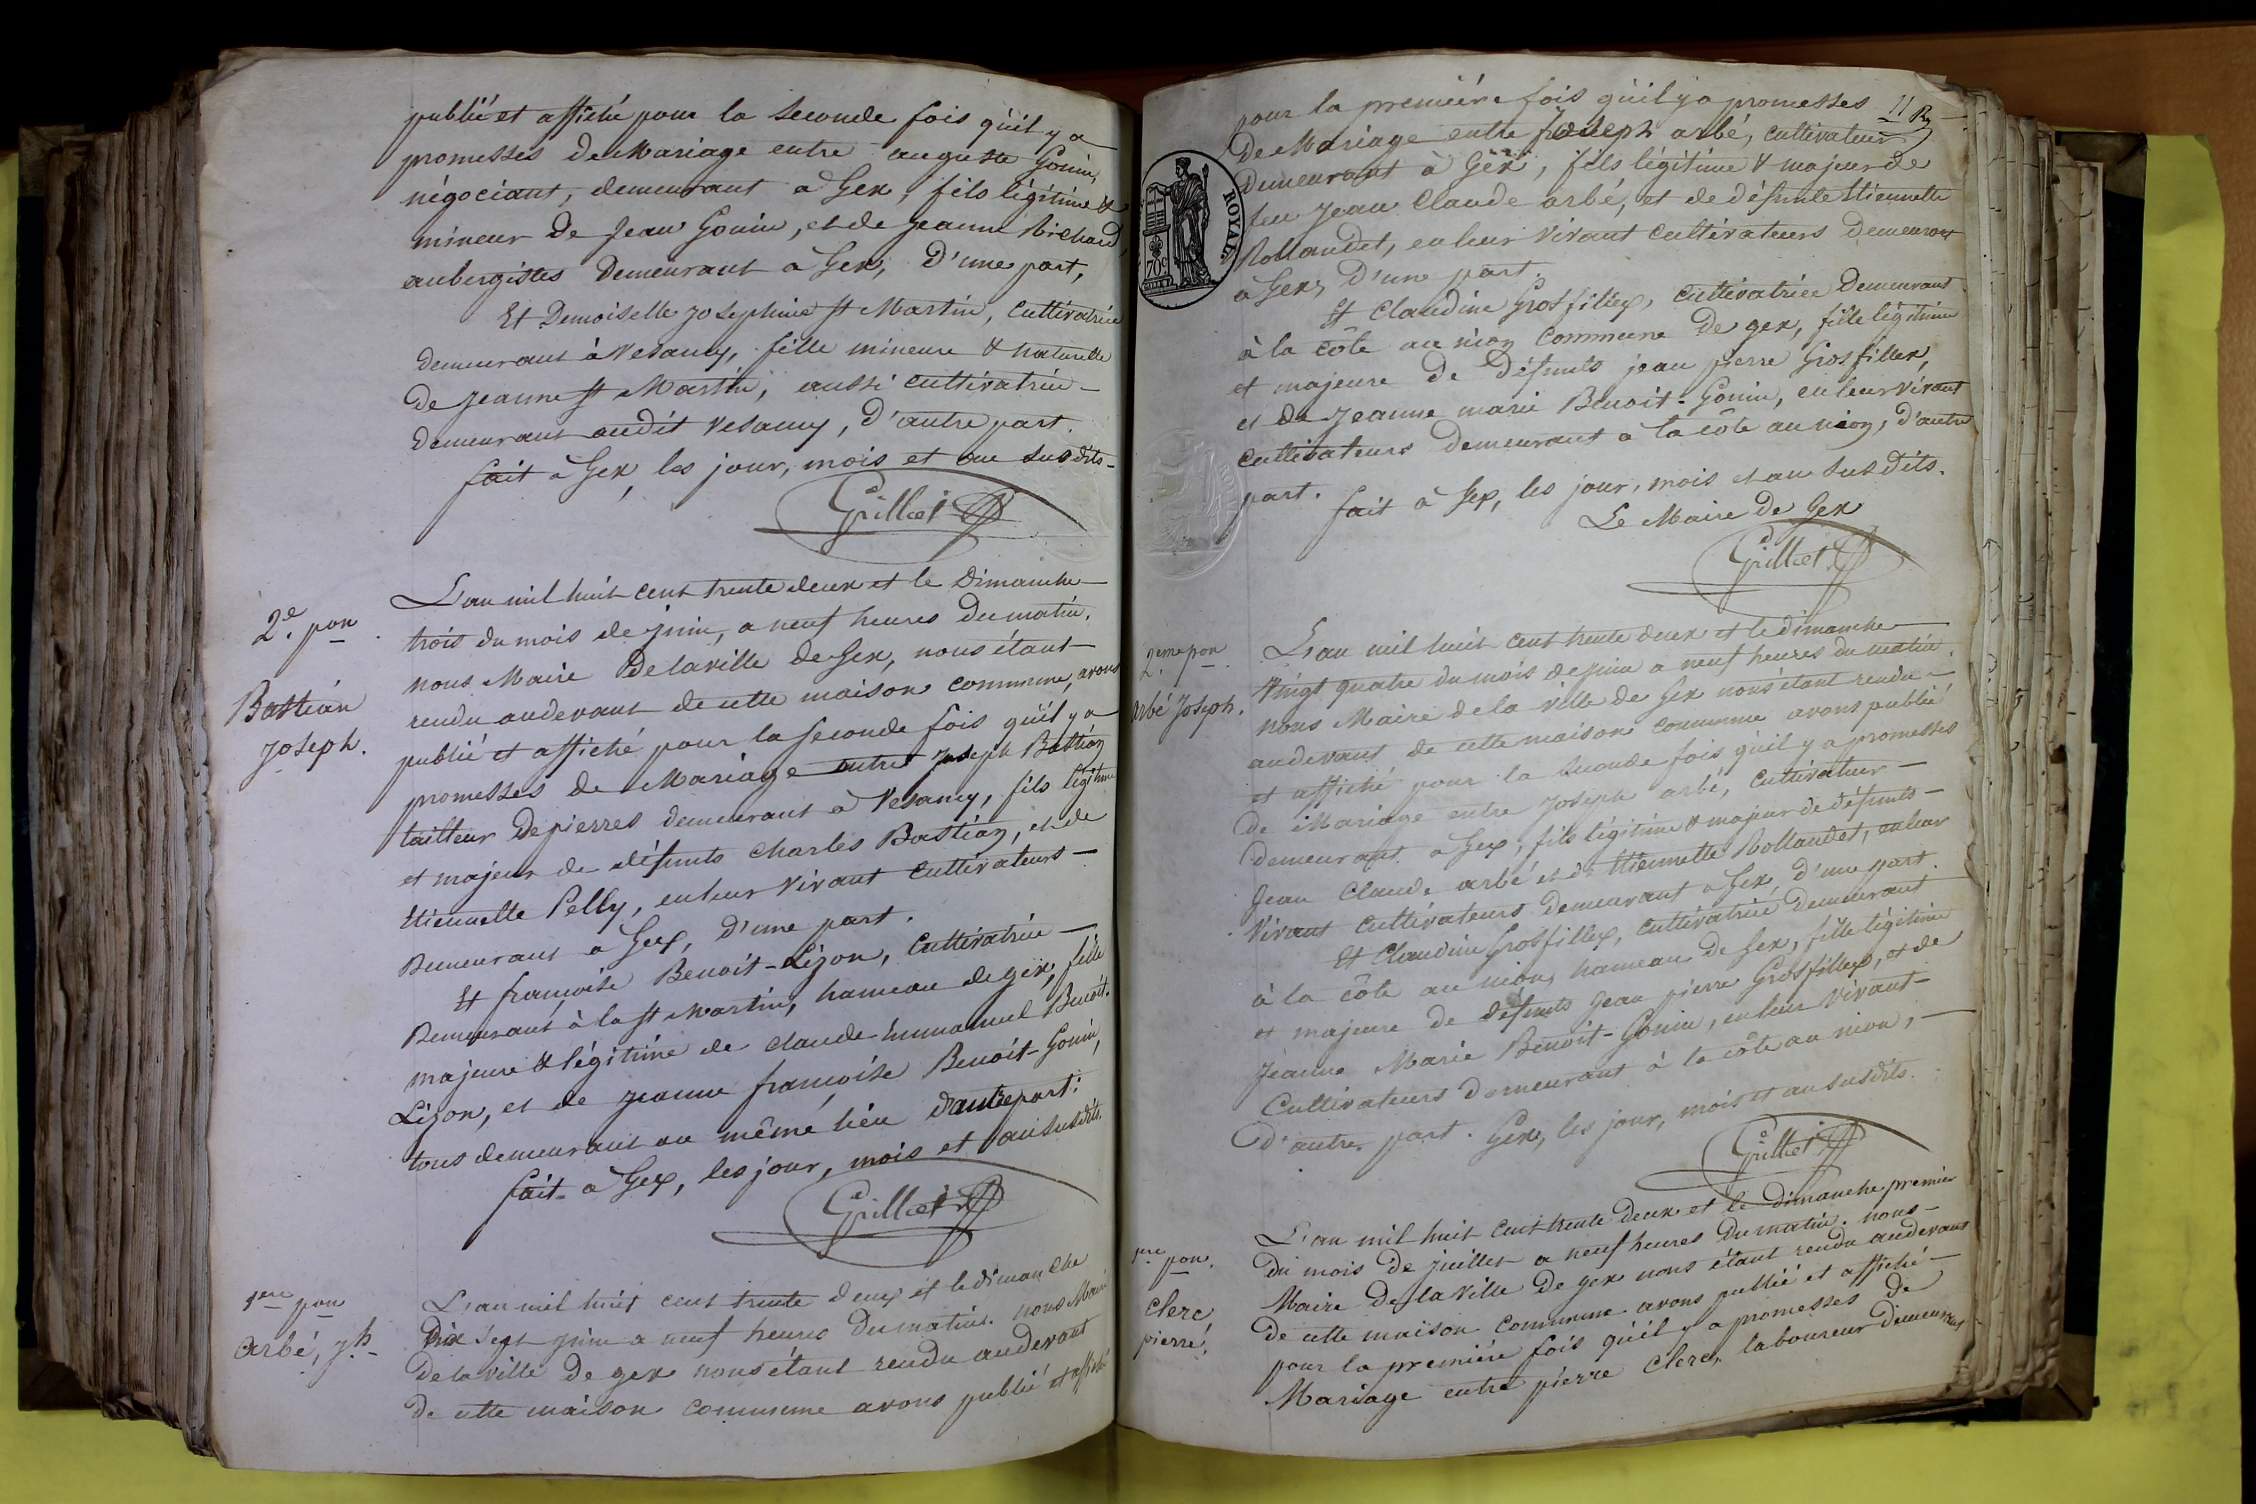 publié et affiché pour la seconde fois qu'il y a
promesses de Mariage entre auguste Gonin,
négociant, demeurant à Gex, fils légitime &
mineur de Jean Gonin, et de Jeanne Richard,
aubergistes demeurant à Gex, d'une part,
Et Demoiselle Josephine St Martin, Cultivatrice
demeurant à Vesancy, fille mineure & naturelle
de Jeanne St Martin, aussi cultivatrice
demeurant audit Vesancy, d'autre part.
fait à Gex, les jour, mois et an susdits
Grilliet
2e. pon
Bastian
Joseph.
L'an mil huit cent trente deux et le Dimanche
trois du mois de juin, a neuf heures du matin.
nous Maire de la ville de Gex, nous étant
rendu audevant de cette maison commune, avons
publié et affiché pour la seconde fois qu'il y a
promesses de Mariage entre Joseph Bastian
tailleur de pierres demeurant à Vesancy, fils légitime
et majeur de défunts Charles Bastian, et de
Etiennette Pelly, en leur vivant cultivateurs
Demeurant à Gex, d'une part.
Et françoise Benoit-Lizon, Cultivatrice
Demeurant à la St Martin, hameau de gex, fille
majeure & légitime de Claude Emmanuel Benoit-
Lizon, et de Jeanne françoise Benoit-Gonin,
tous demeurant au même lieu d'autre part.
fait à Gex, les jour, mois et an susdits.
Grilliet
1ere pon
Arbé, Jh
L'an mil huit cent trente deux et le dimanche
Dix sept juin a neuf heures du matin. nous Maire
de la ville de gex nous étant rendu audevant
de cette maison commune avons publié et affiché
11 Rg
pour la première fois qu'il y a promesses
de Mariage entre Joseph arbé, cultivateur
demeurant à Gex, fils légitime & majeur de
feu Jean Claude arbé, et de défunte Etiennette
Rollandet, en leur vivant cultivateurs Demeurant
à Gex, d'une part.
Et Claudine Grosfillex, cultivatrice Demeurant
à la côte au nion commune de gex, fille légitime
et majeure de défunts jean pierre Grosfillex,
et de Jeanne marie Benoit-Gonin, en leur vivant
cultivateurs demeurant à la côte au nion, d'autre
part.
fait à Gex, les jour, mois et an susdits.
Le Maire de Gex
Grilliet
ROYAL
70c
2eme pon
Arbé Joseph.
L'an mil huit cent trente deux et le dimanche
Vingt quatre du mois de juin a neuf heures du matin.
nous Maire de la ville de Gex nous étant rendu
audevant de cette maison commune avons publié
et affiché pour la seconde fois qu'il y a promesses
de Mariage entre Joseph arbé, Cultivateur
demeurant à Gex, fils légitime & majeur de défunts
Jean Claude arbé et de Etiennette Rollandet, en leur
Vivant Cultivateurs demeurant à Gex, d'une part.
Et Claudine Grosfillex, cultivatrice demeurant
à la côte au nion, hameau de Gex, fille légitime
et majeure de défunts Jean pierre Grosfillex, et de
Jeanne Marie Benoit-Gonin, en leur vivant
Cultivateurs demeurant à la côte au nion,
d'autre part. Gex, les jour, mois et an susdits.
Grilliet
1re pon.
Clerc,
pierre,
L'an mil huit cent trente deux et le dimanche premier
du mois de juillet a neuf heures du matin. nous
Maire de la Ville de gex nous étant rendu audevant
de cette maison commune avons publié et affiché
pour la première fois qu'il y a promesses de
Mariage entre pierre Clerc, laboureur demeurant